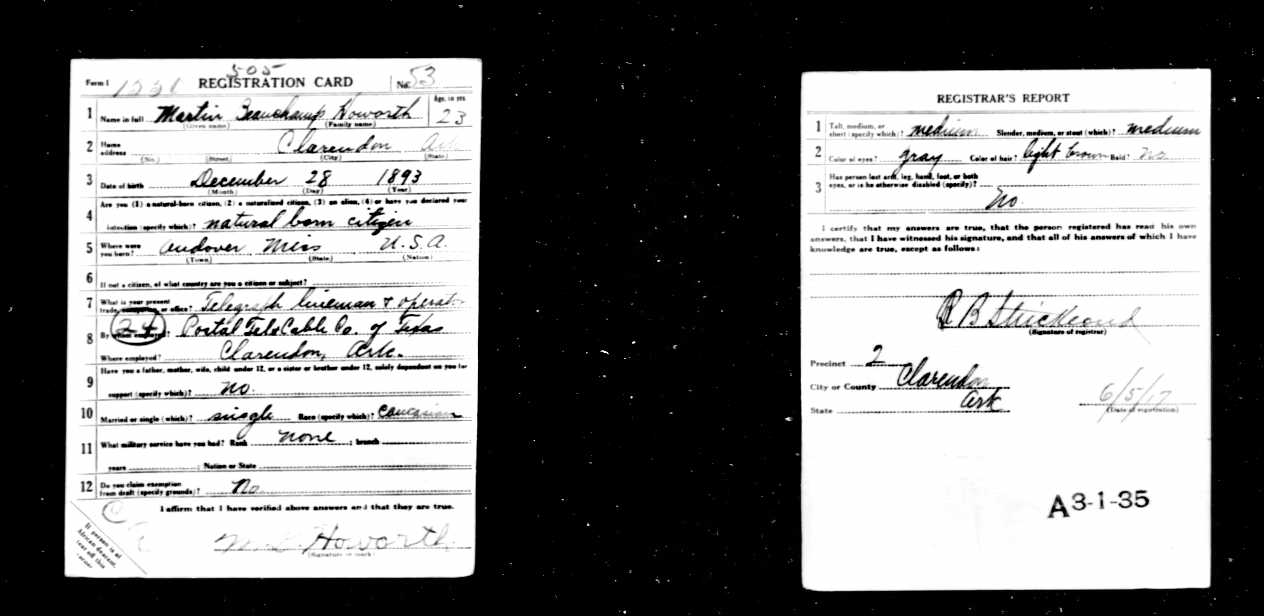 505
Form 1 1331 REGISTRATION CARD No. 53
1 Name in full Martin Beauchamp Howorth Age, in yrs 23
(Given name) (Family name)
2 Home address Clarendon Ark
(No.) (Street) (City) (State)
3 Date of birth December 28 1893
(Month) (Day) (Year)
4 Are you (1) a natural-born citizen, (2) a naturalized citizen, (3) an alien, (4) or have you declared your
intention (specify which)? natural born citizen
5 Where were you born? Andover Miss U.S.A.
(Town) (State) (Nation)
6 If not a citizen, of what country are you a citizen or subject?
7 What is your present trade, occupation, or office? Telegraph lineman & operator
8 By whom employed? Postal Tel & Cable Co. of Texas
24
Where employed? Clarendon, Ark.
9 Have you a father, mother, wife, child under 12, or a sister or brother under 12, solely dependent on you for
support (specify which)? no
10 Married or single (which)? single Race (specify which)? Caucasian
11 What military service have you had? Rank none ; branch
years ; Nation or State
12 Do you claim exemption from draft (specify grounds)? No
I affirm that I have verified above answers and that they are true.
M. B. Howorth
(Signature or mark)
If person is of
African descent,
tear off this
corner.
REGISTRAR'S REPORT
1 Tall, medium, or short (specify which)? medium Slender, medium, or stout (which)? medium
2 Color of eyes? gray Color of hair? light brown Bald? No
3 Has person lost arm, leg, hand, foot, or both
eyes, or is he otherwise disabled (specify)?
No.
I certify that my answers are true, that the person registered has read his own
answers, that I have witnessed his signature, and that all of his answers of which I have
knowledge are true, except as follows:
B Strickland
(Signature of registrar)
Precinct 2
City or County Clarendon
State Ark 6/5/17
(Date of registration)
A3-1-35